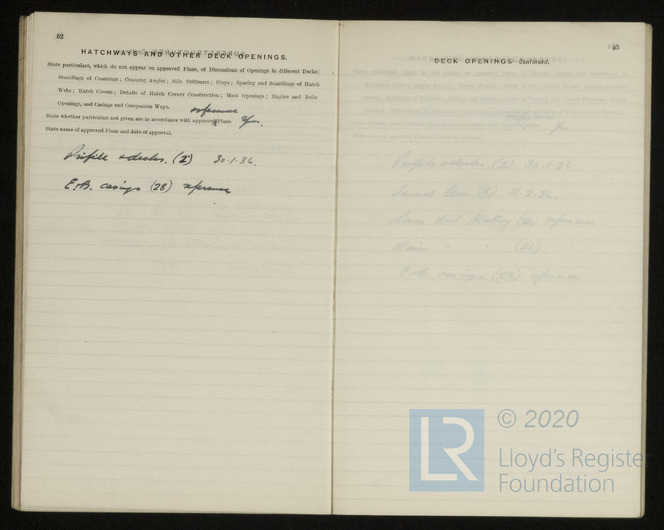 52
HATCHWAYS AND OTHER DECK OPENINGS.
State particulars, which do not appear on approved Plans, of Dimensions of Openings in different Decks;
Scantlings of Coamings; Coaming Angles; Side Stiffeners; Stays; Spacing and Scantlings of Hatch
Webs; Hatch Covers; Details of Hatch Corner Construction; Mast Openings; Engine and Boiler
Openings, and Casings and Companion Ways.
reference
State whether particulars not given are in accordance with approved Plans. Yes.
State name of approved Plans and date of approval.
Profile & decks. (2) 30.1.36.
E.B. casings (28) reference
53
DECK OPENINGS—Continued.
Profile & decks (2) 30.1.36
(28)
E.B. casings (28) reference
LR
© 2020
Lloyd's Register
Foundation